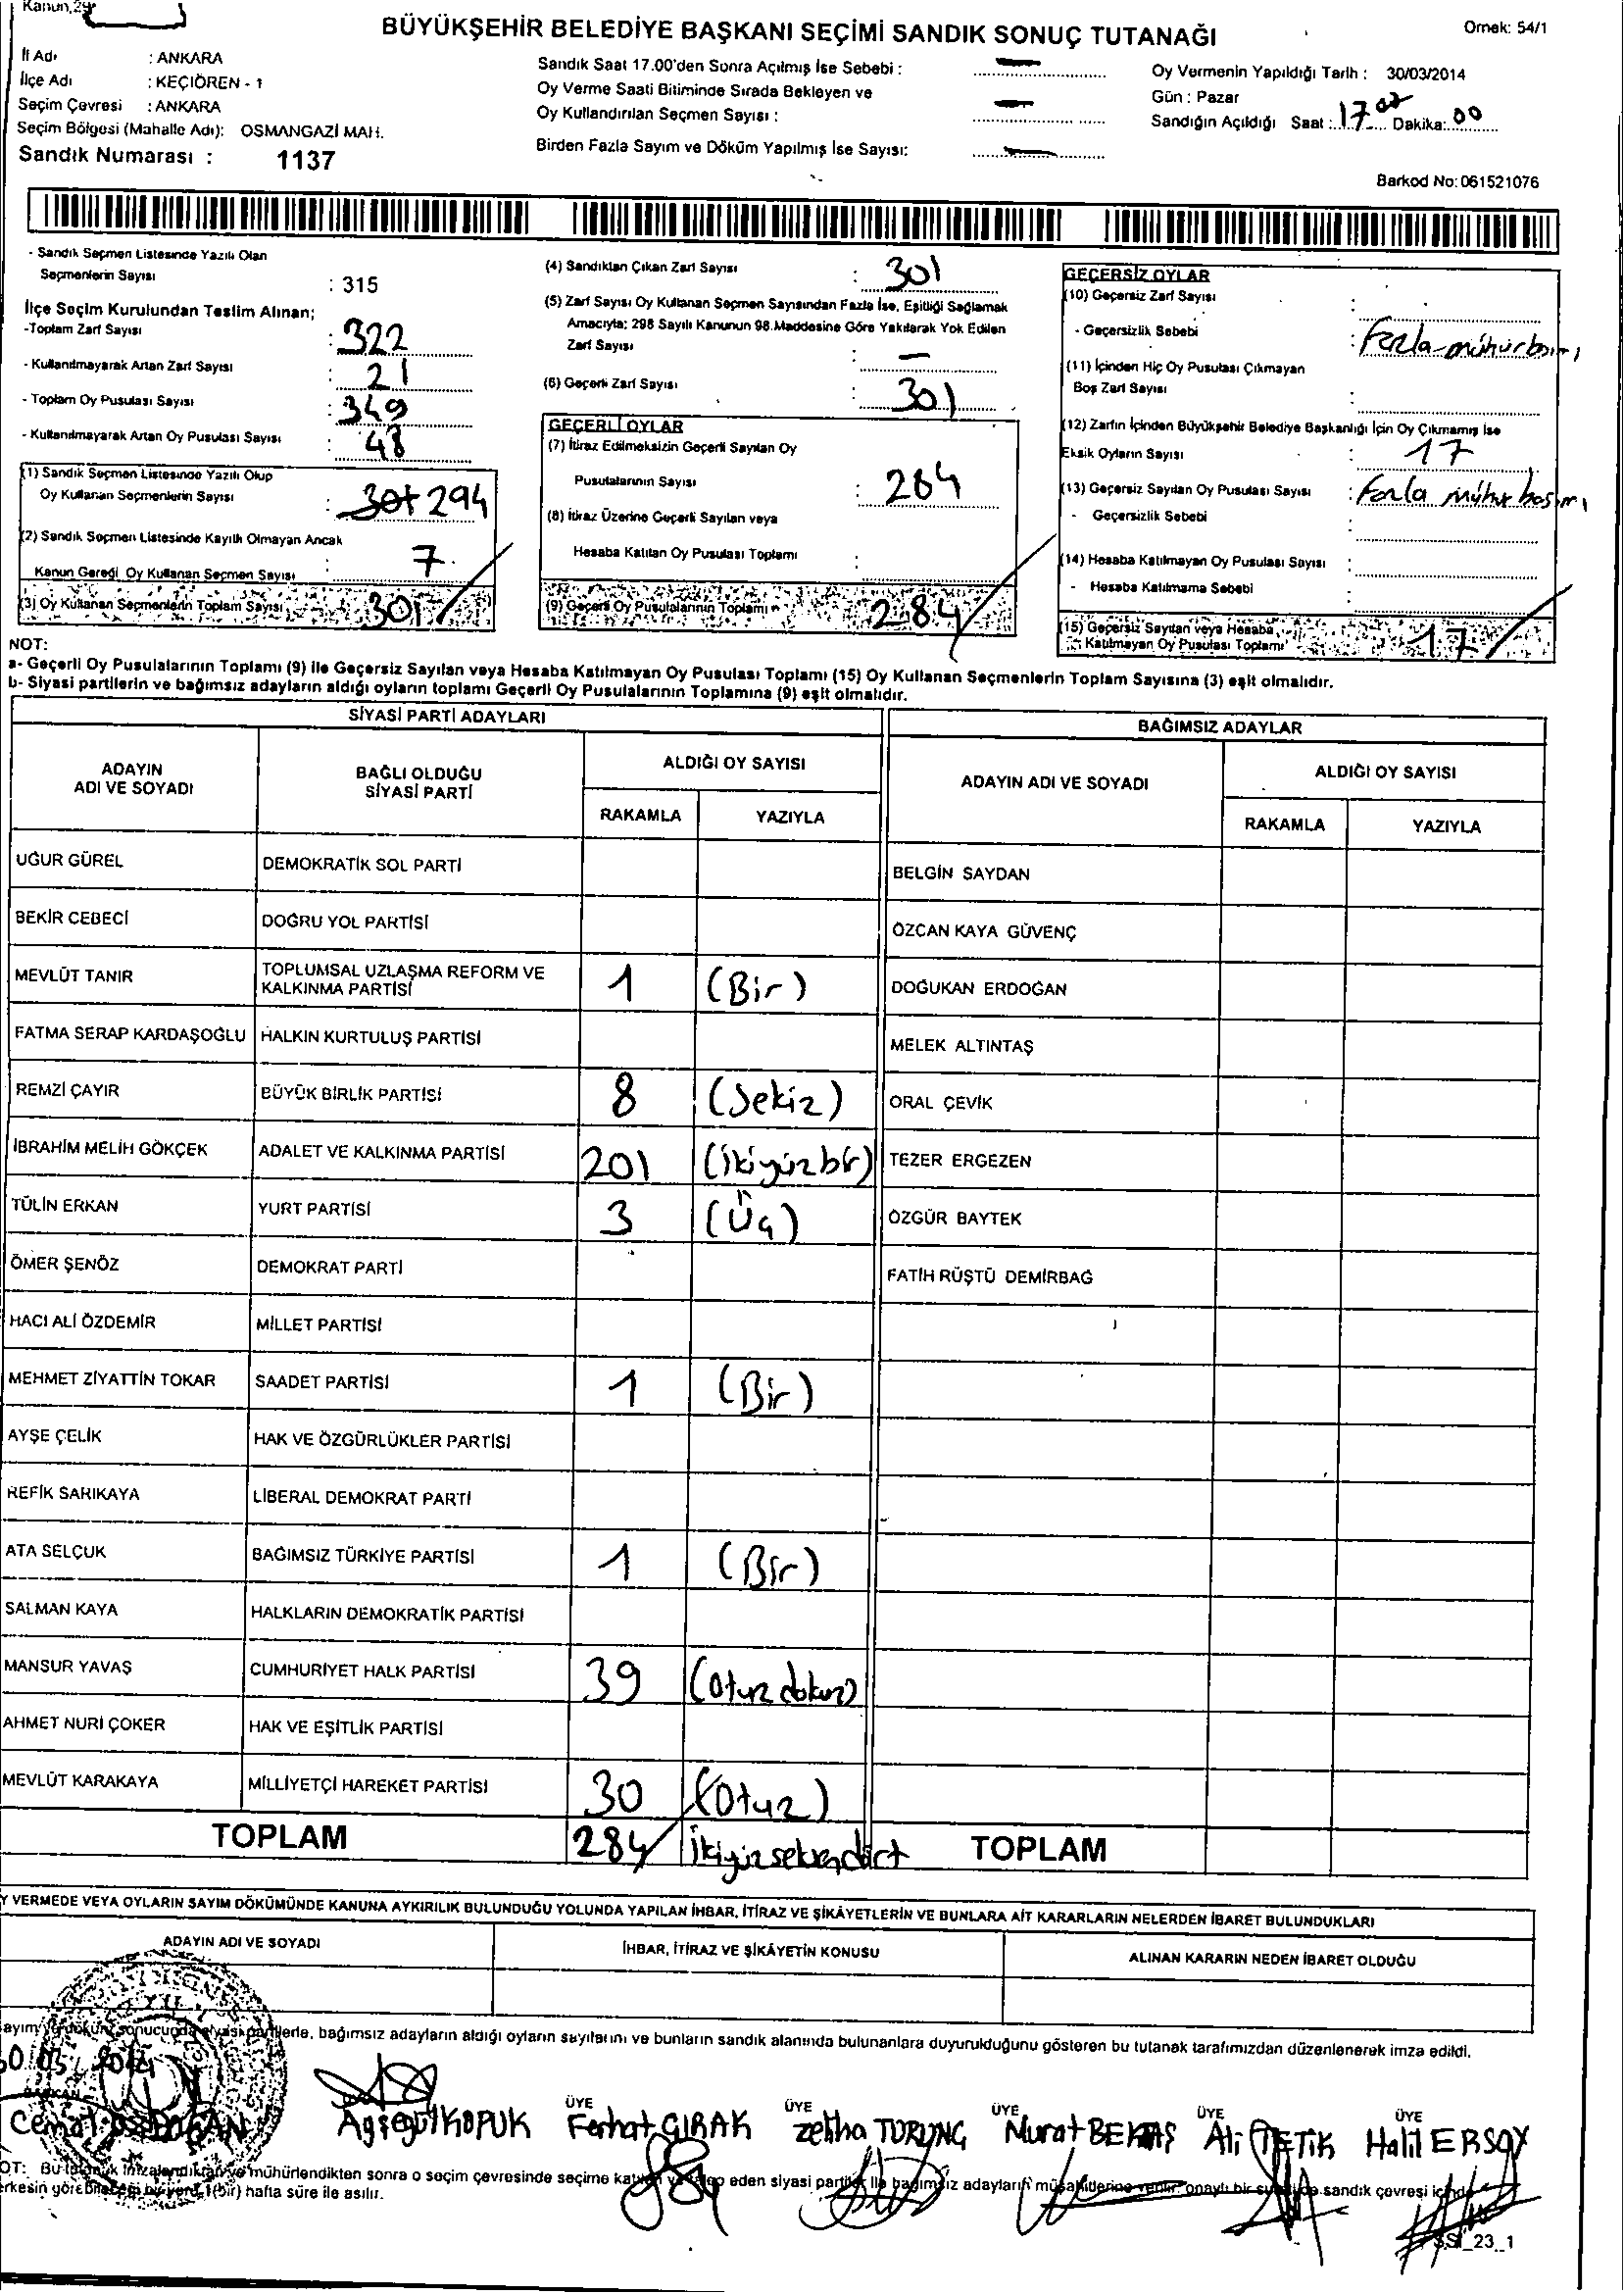 Kanun,29
BÜYÜKŞEHİR BELEDİYE BAŞKANI SEÇİMİ SANDIK SONUÇ TUTANAĞI
Örnek: 54/1
İl Adı : ANKARA
İlçe Adı : KEÇİÖREN - 1
Seçim Çevresi : ANKARA
Seçim Bölgesi (Mahalle Adı): OSMANGAZİ MAH.
Sandık Numarası : 1137
Sandık Saat 17.00'den Sonra Açılmış İse Sebebi : —
Oy Verme Saati Bitiminde Sırada Bekleyen ve
Oy Kullandırılan Seçmen Sayısı : —
Birden Fazla Sayım ve Döküm Yapılmış İse Sayısı: —
Oy Vermenin Yapıldığı Tarih : 30/03/2014
Gün : Pazar
Sandığın Açıldığı Saat : 17 Dakika: 00
Barkod No: 061521076
- Sandık Seçmen Listesinde Yazılı Olan
Seçmenlerin Sayısı : 315
İlçe Seçim Kurulundan Teslim Alınan;
-Toplam Zarf Sayısı : 322
- Kullanılmayarak Artan Zarf Sayısı : 21
- Toplam Oy Pusulası Sayısı : 349
- Kullanılmayarak Artan Oy Pusulası Sayısı : 48
(1) Sandık Seçmen Listesinde Yazılı Olup
Oy Kullanan Seçmenlerin Sayısı : 301 294
(2) Sandık Seçmen Listesinde Kayıtlı Olmayan Ancak
Kanun Gereği Oy Kullanan Seçmen Sayısı : 7
(3) Oy Kullanan Seçmenlerin Toplam Sayısı : 301
(4) Sandıktan Çıkan Zarf Sayısı : 301
(5) Zarf Sayısı Oy Kullanan Seçmen Sayısından Fazla İse, Eşitliği Sağlamak
Amacıyla; 298 Sayılı Kanunun 98.Maddesine Göre Yakılarak Yok Edilen
Zarf Sayısı : —
(6) Geçerli Zarf Sayısı : 301
GEÇERLİ OYLAR
(7) İtiraz Edilmeksizin Geçerli Sayılan Oy
Pusulalarının Sayısı : 284
(8) İtiraz Üzerine Geçerli Sayılan veya
Hesaba Katılan Oy Pusulası Toplamı :
(9) Geçerli Oy Pusulalarının Toplamı 284
GEÇERSİZ OYLAR
(10) Geçersiz Zarf Sayısı :
- Geçersizlik Sebebi : Fazla mühür basımı
(11) İçinden Hiç Oy Pusulası Çıkmayan
Boş Zarf Sayısı :
(12) Zarfın İçinden Büyükşehir Belediye Başkanlığı İçin Oy Çıkmamış İse
Eksik Oyların Sayısı : 17
(13) Geçersiz Sayılan Oy Pusulası Sayısı : fazla mühür basımı
- Geçersizlik Sebebi :
(14) Hesaba Katılmayan Oy Pusulası Sayısı :
- Hesaba Katılmama Sebebi :
(15) Geçersiz Sayılan veya Hesaba
Katılmayan Oy Pusulası Toplamı 17
NOT:
a- Geçerli Oy Pusulalarının Toplamı (9) ile Geçersiz Sayılan veya Hesaba Katılmayan Oy Pusulası Toplamı (15) Oy Kullanan Seçmenlerin Toplam Sayısına (3) eşit olmalıdır.
b- Siyasi partilerin ve bağımsız adayların aldığı oyların toplamı Geçerli Oy Pusulalarının Toplamına (9) eşit olmalıdır.
SİYASİ PARTİ ADAYLARI
BAĞIMSIZ ADAYLAR
ADAYIN ADI VE SOYADI
BAĞLI OLDUĞU SİYASİ PARTİ
ALDIĞI OY SAYISI
RAKAMLA YAZIYLA
ADAYIN ADI VE SOYADI
ALDIĞI OY SAYISI
RAKAMLA YAZIYLA
UĞUR GÜREL DEMOKRATİK SOL PARTİ BELGİN SAYDAN
BEKİR CEBECİ DOĞRU YOL PARTİSİ ÖZCAN KAYA GÜVENÇ
MEVLÜT TANIR TOPLUMSAL UZLAŞMA REFORM VE KALKINMA PARTİSİ 1 (Bir) DOĞUKAN ERDOĞAN
FATMA SERAP KARDAŞOĞLU HALKIN KURTULUŞ PARTİSİ MELEK ALTINTAŞ
REMZİ ÇAYIR BÜYÜK BİRLİK PARTİSİ 8 (Sekiz) ORAL ÇEVİK
İBRAHİM MELİH GÖKÇEK ADALET VE KALKINMA PARTİSİ 201 (ikiyüzbir) TEZER ERGEZEN
TÜLİN ERKAN YURT PARTİSİ 3 (Üç) ÖZGÜR BAYTEK
ÖMER ŞENÖZ DEMOKRAT PARTİ FATİH RÜŞTÜ DEMİRBAĞ
HACI ALİ ÖZDEMİR MİLLET PARTİSİ
MEHMET ZİYATTİN TOKAR SAADET PARTİSİ 1 (Bir)
AYŞE ÇELİK HAK VE ÖZGÜRLÜKLER PARTİSİ
REFİK SARIKAYA LİBERAL DEMOKRAT PARTİ
ATA SELÇUK BAĞIMSIZ TÜRKİYE PARTİSİ 1 (Bir)
SALMAN KAYA HALKLARIN DEMOKRATİK PARTİSİ
MANSUR YAVAŞ CUMHURİYET HALK PARTİSİ 39 (Otuz dokuz)
AHMET NURİ ÇOKER HAK VE EŞİTLİK PARTİSİ
MEVLÜT KARAKAYA MİLLİYETÇİ HAREKET PARTİSİ 30 (Otuz)
TOPLAM 284 İkiyüzseksendört TOPLAM
Y VERMEDE VEYA OYLARIN SAYIM DÖKÜMÜNDE KANUNA AYKIRILIK BULUNDUĞU YOLUNDA YAPILAN İHBAR, İTİRAZ VE ŞİKÂYETLERİN VE BUNLARA AİT KARARLARIN NELERDEN İBARET BULUNDUKLARI
ADAYIN ADI VE SOYADI İHBAR, İTİRAZ VE ŞİKÂYETİN KONUSU ALINAN KARARIN NEDEN İBARET OLDUĞU
sonucunda siyasi partilerle, bağımsız adayların aldığı oyların sayılarını ve bunların sandık alanında bulunanlara duyurulduğunu gösteren bu tutanak tarafımızdan düzenlenerek imza edildi.
03 2014
BAŞKAN ÜYE ÜYE ÜYE ÜYE ÜYE
Cemal Ayşegül KOPUK Ferhat GIRAK Zeliha TURUNÇ Murat BEKTAŞ Ali TETİK Halil ERSOY
OT: Bu tutanak imzalandıktan ve mühürlendikten sonra o seçim çevresinde seçime katılan eden siyasi partiler ile bağımsız adayların müşahitlerine verilir. onaylı bir sandık çevresi içinde
erkesin görebileceği bir yerde 1(bir) hafta süre ile asılır.
SSI_23_1